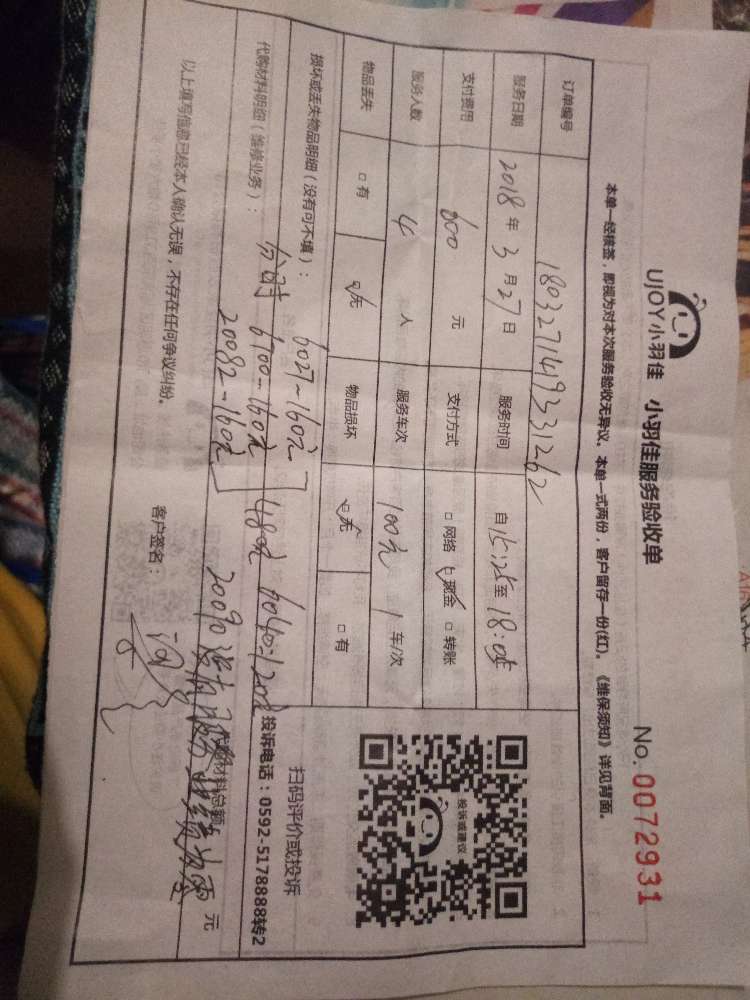 UJOY小羽佳 小羽佳服务验收单
No. 0072931
本单一经核签，即视为对本次服务验收无异议。本单一式两份，客户留存一份(红)。《维保须知》详见背面。
订单编号 1803271419331262
服务日期 2018年3月27日 服务时间 自15:25至18:05
支付费用 600元 支付方式 □网络 ☑现金 □转账
服务人数 4人 服务车次 100元 1车/次
物品丢失 □有 ☑无 物品损坏 ☑无 □有
投诉或建议
扫码评价或投诉
投诉电话：0592-5178888转2
损坏或丢失物品明细（没有可不填）：
6027-160元
代购材料明细（维修业务）：
分时 6700-160元 480 6040=120
20082-160元
20090没有服务业绩
代购材料总额 元
以上填写信息已经本人确认无误，不存在任何争议纠纷。
客户签名：